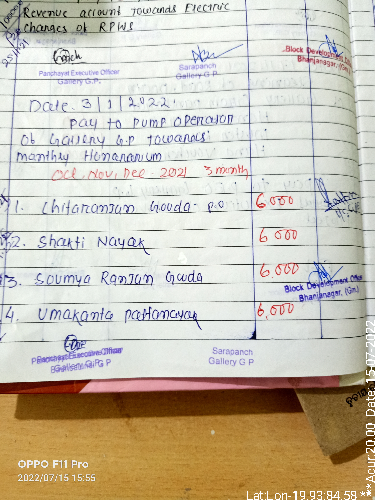 Revenue account Towards Electric
changes of RPWS
25/1/21
Panchayat Executive Officer
Gallery G.P.
Sarapanch
Gallery G.P.
Block Development
Bhanjanagar, (Gm.)
Date. 3/1/2022.
Pay to Pump operator
Of Gallery G.P Towards
monthly Honararium
Oct, Nov, Dec 2021 3 month
1. Chitaranjan Gouda - P.O 6,000
2. Shakti Nayak 6,000
3. Soumya Ranjan Gouda 6,000
Block Development Officer
Bhanjanagar, (Gm.)
4. Umakanta Pattanayak 6,000
Panchayat Executive Officer
Gallery G.P
Sarapanch
Gallery G P
OPPO F11 Pro
2022/07/15 15:55
Lat:Lon-19.93:84.58 ***Acur 20.00 Date: 15-07-2022